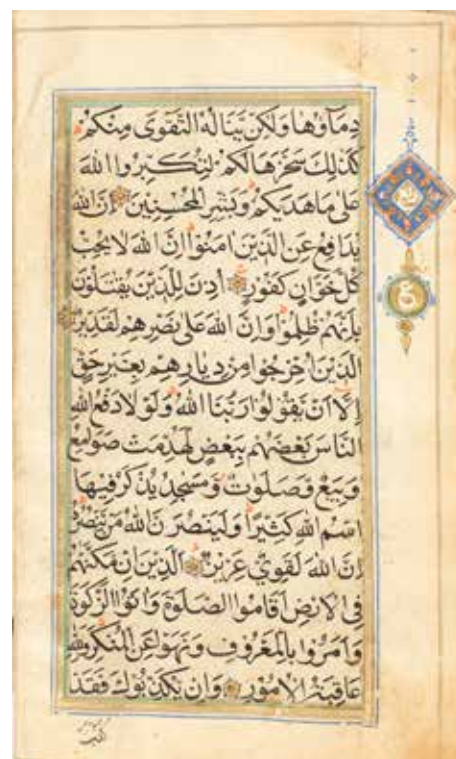 دِمَآؤُهَا وَلَكِنْ يَنَالُهُ التَّقْوَى مِنْكُمْ
كَذَلِكَ سَخَّرَهَا لَكُمْ لِتُكَبِّرُوا اللهَ
عَلَى مَا هَدَيكُمْ وَبَشِّرِ الْمُحْسِنِينَ اِنَّ اللهَ
يُدَافِعُ عَنِ الَّذِينَ امَنُوْا اِنَّ اللهَ لَا يُحِبُّ
كُلَّ خَوَّانٍ كَفُوْرٍ اُذِنَ لِلَّذِيْنَ يُقْتَلُوْنَ
بِاَنَّهُمْ ظُلِمُوْا وَاِنَّ اللهَ عَلَى نَصْرِهِمْ لَقَدِيْرٌ
الَّذِيْنَ اُخْرِجُوْا مِنْ دِيَارِهِمْ بِغَيْرِ حَقٍّ
اِلَّا اَنْ يَقُوْلُوْا رَبُّنَا اللهُ وَلَوْلَا دَفْعُ اللهِ
النَّاسَ بَعْضَهُمْ بِبَعْضٍ لَهُدِّمَتْ صَوَامِعُ
وَبِيَعٌ وَصَلَوَاتٌ وَمَسَجِدُ يُذْكَرُ فِيْهَا
اسْمُ اللهِ كَثِيْرًا وَلَيَنْصُرَنَّ اللهُ مَنْ يَنْصُرُهُ
اِنَّ اللهَ لَقَوِيٌّ عَزِيْزٌ اَلَّذِيْنَ اِنْ مَكَّنَّهُمْ
فِى الْاَرْضِ اَقَامُوا الصَّلٰوةَ وَاتَوُا الزَّكٰوةَ
وَاَمَرُوْا بِالْمَعْرُوْفِ وَنَهَوْا عَنِ الْمُنْكَرِ وَلِلهِ
عَاقِبَةُ الْاُمُوْرِ وَاِنْ يُكَذِّبُوْكَ فَقَدْ